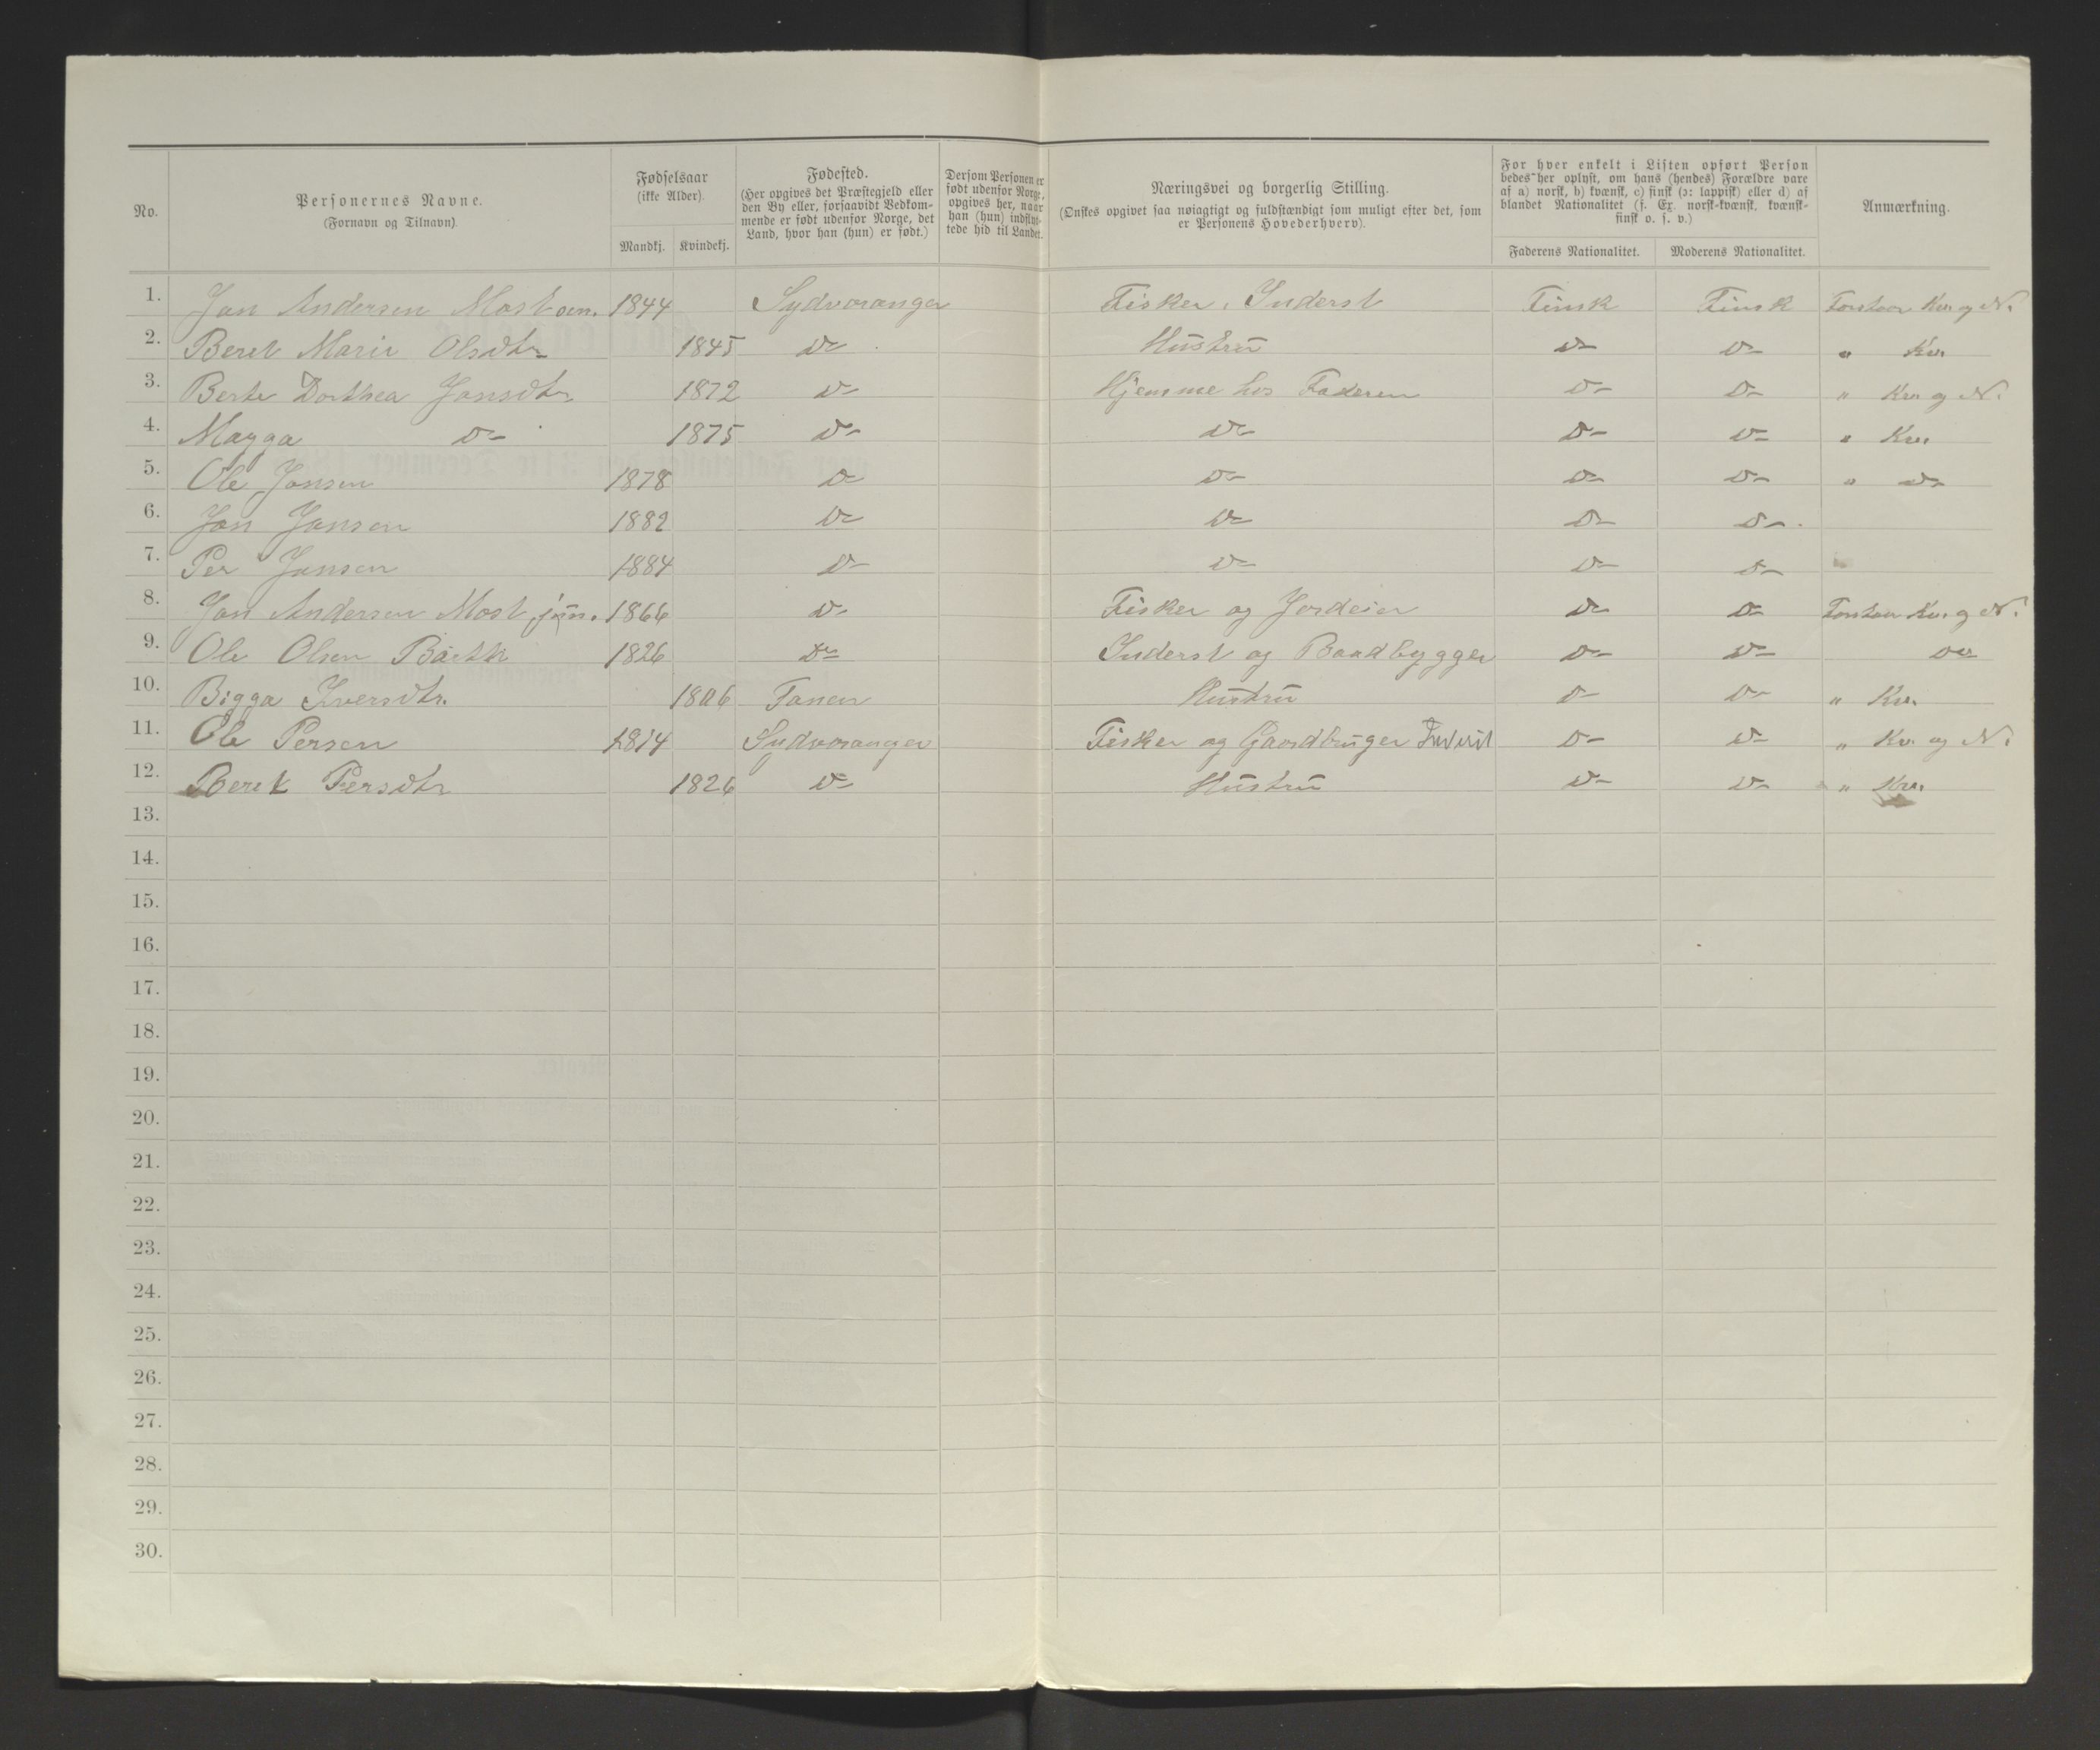 No.
Personernes Navne.
(Fornavn og Tilnavn).
Fødselsaar
(ikke Alder).
Mandkj. Kvindekj.
Fødested.
(Her opgives det Præstegjeld eller
den By eller, forsaavidt Vedkom-
mende er født udenfor Norge, det
Land, hvor han (hun) er født.)
Dersom Personen er
født udenfor Norge,
opgives her, naar
han (hun) indflyt-
tede hid til Landet.
Næringsvei og borgerlig Stilling.
(Ønskes opgivet saa nøiagtigt og fuldstændigt som muligt efter det, som
er Personens Hovederhverv).
For hver enkelt i Listen opført Person
bedes her oplyst, om hans (hendes) Forældre vare
af a) norsk, b) kvænsk, c) finsk (ɔ: lappisk) eller d) af
blandet Nationalitet (f. Ex. norsk-kvænsk, kvænsk-
finsk o. s. v.)
Faderens Nationalitet. Moderens Nationalitet.
Anmærkning.
1. Jon Andersen Most sen. 1844 Sydvaranger Fisker. Inderst Finsk Finsk Forstaar Kv. og N.
2. Beret Marie Olsdtr 1845 Do Hustru Do Do " Kv.
3. Berte Dorthea Jonsdtr 1872 Do Hjemme hos Faderen Do Do " Kv. og N.
4. Magga Do 1875 Do Do Do Do " Kv.
5. Ole Jonsen 1878 Do Do Do Do " Do
6. Jon Jonsen 1882 Do Do Do Do
7. Per Jonsen 1884 Do Do Do Do
8. Jon Andersen Most jun. 1866 Do Fisker og Jordeier Do Do Forstaar Kv. og N.
9. Ole Olsen 1826 Do Inderst og Baadbygger Do Do Do
10. Bigga Iversdtr. 1806 Tanen Hustru Do Do " Kv.
11. Ole Persen 1814 Sydvaranger Fisker og Gaardbruger Inderst Do Do " Kv. og N.
12. Berit Persdtr 1826 Do Hustru Do Do " Kv.
13.
14.
15.
16.
17.
18.
19.
20.
21.
22.
23.
24.
25.
26.
27.
28.
29.
30.